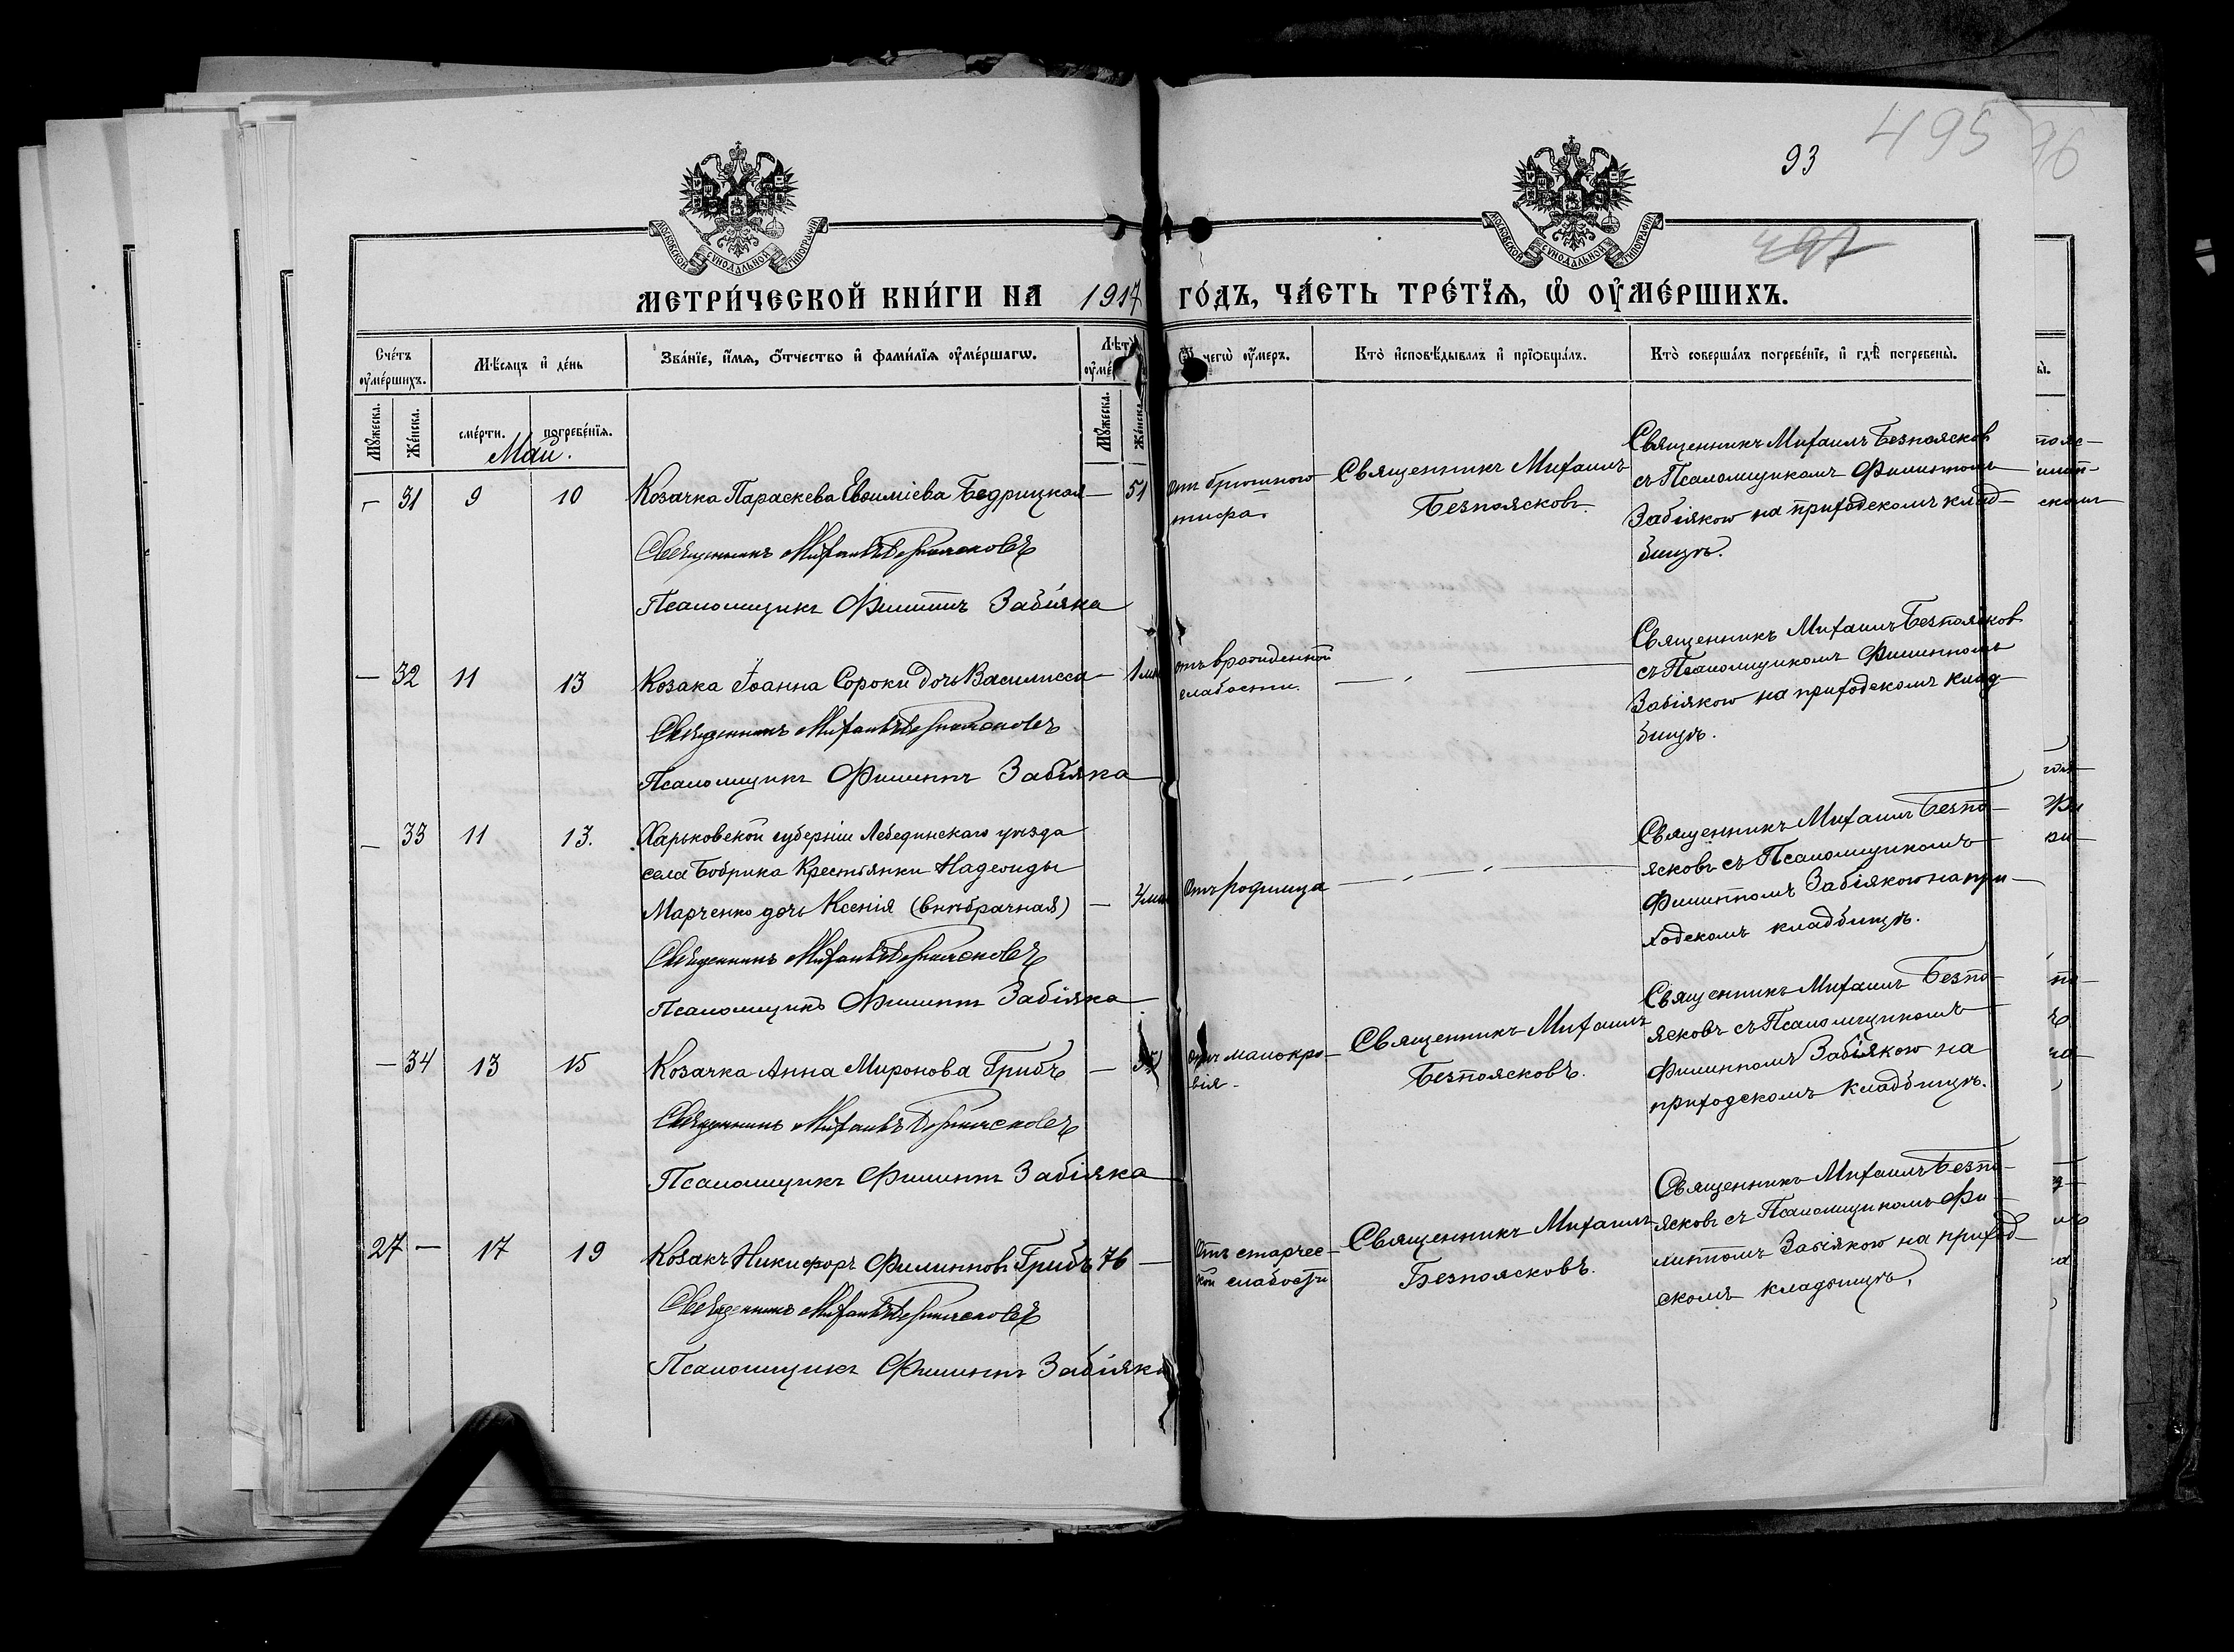 495
96
93
497
МОСКОВСКОЙ СѴНОДАЛЬНОЙ ТИПОГРАФІИ
МОСКОВСКОЙ СѴНОДАЛЬНОЙ ТИПОГРАФІИ
МЕТРИ́ЧЕСКОЙ КНИ́ГИ НА 1917 ГО́ДЪ, ЧА́СТЬ ТРЕ́ТЇѦ, Ѡ҆ ОУ҆МЕ́РШИХЪ.
Сче́тъ оу҆ме́ршихъ.
Мѣ́сяцъ и҆ де́нь
Зва́нїе, и҆́мя, ѻ҆́тчество и҆ фами́лїя оу҆ме́ршагѡ.
Лѣт
оу҆ме
чегѡ̀ оу҆́меръ.
Кто̀ и҆сповѣ́дывалъ и҆ прїѡбща́лъ.
Кто̀ соверша́лъ погребе́нїе, и҆ гдѣ̀ погребены̀.
Мꙋ́жеска.
Же́нска.
сме́рти.
погребе́нїя.
Мꙋ́жеска.
Же́нска.
Май.
— 31 9 10 Козачка Параскева Евѳиміева Бедрицкая — 51
Священникъ Михаилъ Безпоясковъ
Псаломщикъ Филиппъ Забіяка
отъ брюшного
тифа.
Священникъ Михаилъ
Безпоясковъ.
Священникъ Михаилъ Безпоясков
съ Псаломщикомъ Филиппомъ
Забіякою на приходскомъ клад-
бищѣ.
— 32 11 13 Козака Іоанна Сороки дочь Василисса — 1 м
Священникъ Михаилъ Безпоясковъ
Псаломщикъ Филиппъ Забіяка
отъ врожденной
слабости.
— „ —
Священникъ Михаилъ Безпоясков
съ Псаломщикомъ Филиппомъ
Забіякою на приходскомъ клад-
бищѣ.
— 33 11 13. Харьковской губерніи Лебединскаго уѣзда
села Бобрика Крестьянки Надежды
Марченко дочь Ксенія (внѣбрачная) —
Священникъ Михаилъ Безпоясковъ
Псаломщикъ Филиппъ Забіяка
Отъ родимца
— „ — „ —
Священникъ Михаилъ Безпо-
ясковъ съ Псаломщикомъ
Филиппомъ Забіякою на при-
ходскомъ кладбищѣ.
— 34 13 15 Козачка Анна Миронова Грибъ —
Священникъ Михаилъ Безпоясковъ
Псаломщикъ Филиппъ Забіяка
отъ малокро-
вія.
Священникъ Михаилъ
Безпоясковъ.
Священникъ Михаилъ Безпо-
ясковъ съ Псаломщикомъ
Филиппомъ Забіякою на
приходскомъ кладбищѣ.
27 — 17 19 Козакъ Никифоръ Филипповъ Грибъ 76 —
Священникъ Михаилъ Безпоясковъ
Псаломщикъ Филиппъ Забіяка
Отъ старчес-
кой слабости
Священникъ Михаилъ
Безпоясковъ.
Священникъ Михаилъ Безпо-
ясковъ съ Псаломщикомъ Фи-
липпомъ Забіякою на приход-
скомъ кладбищѣ.